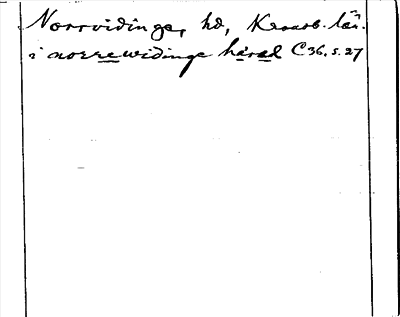 Norrvidinge, hd, Kronob. län.
i norrewidinge härad C36, s. 27